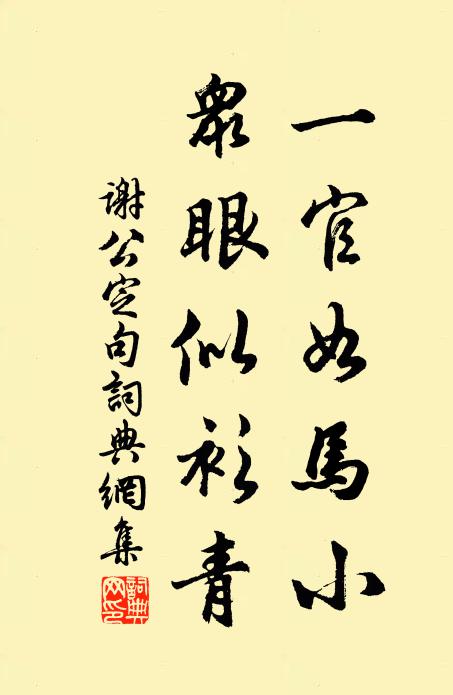 一官如馬小
衆眼似衫青
謝公定句詞典網集
詞典網印